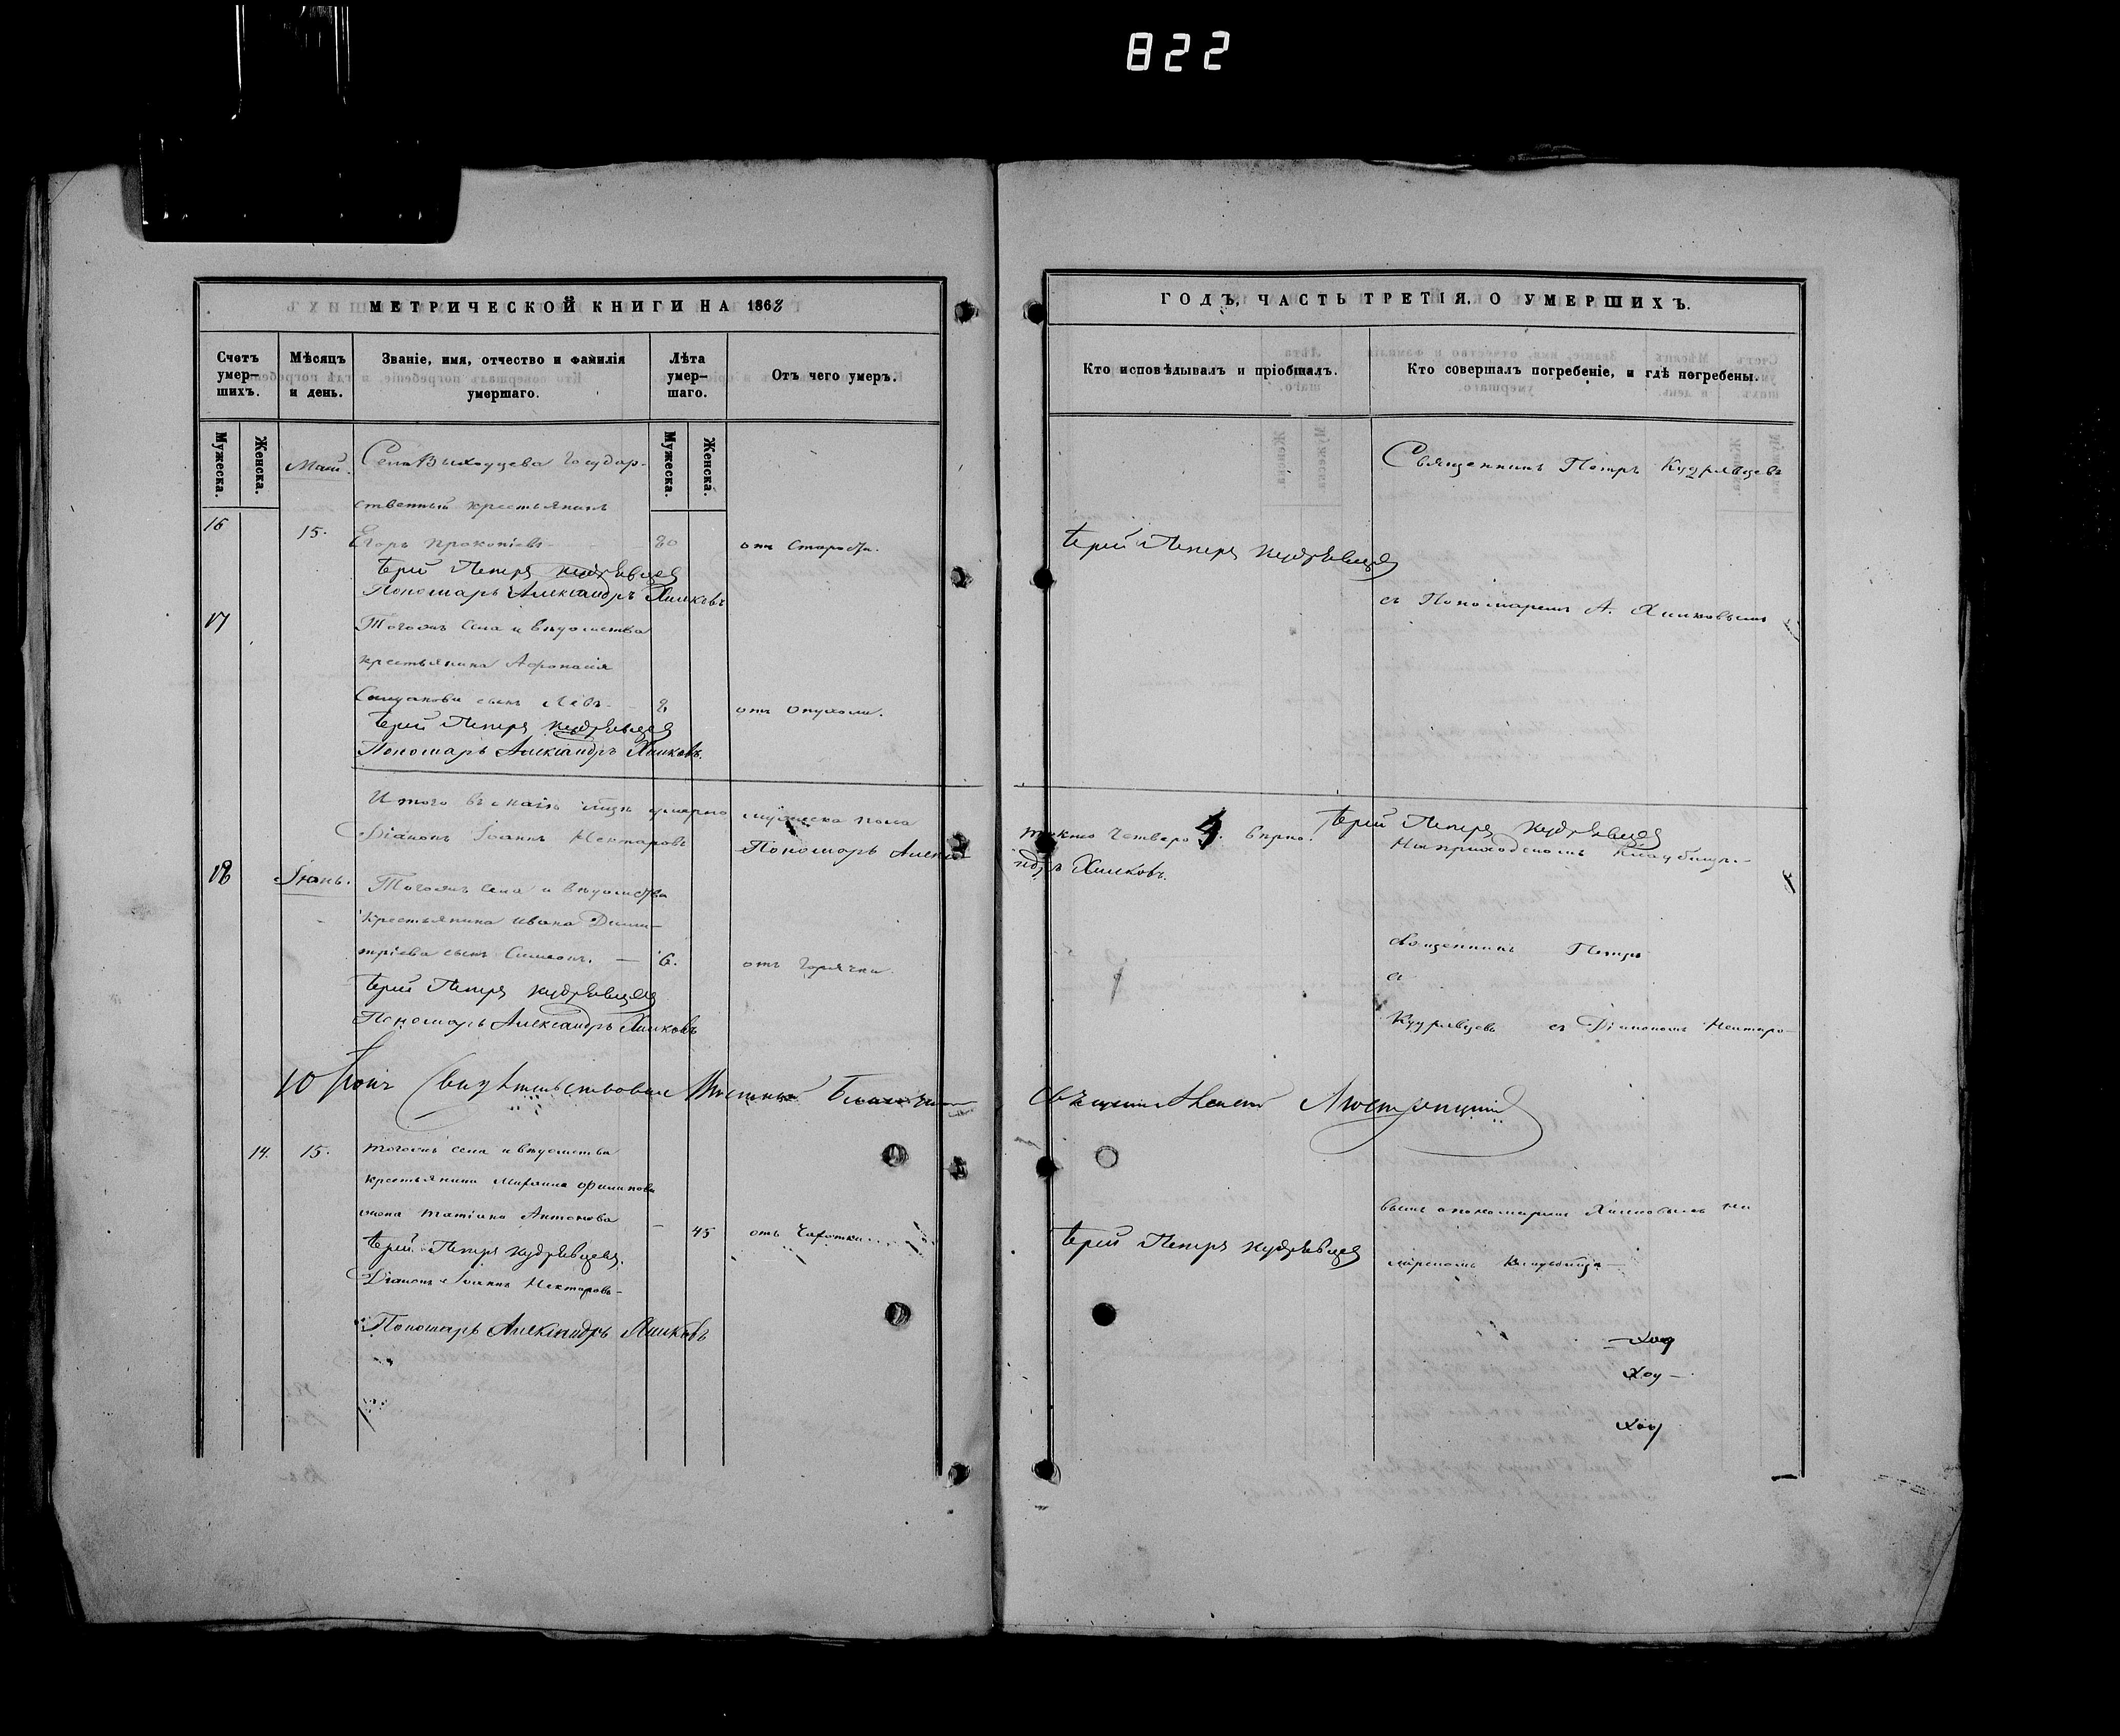 822
МЕТРИЧЕСКОЙ КНИГИ НА 1868
Счетъ умер- шихъ.
Мѣсяцъ и день.
Званіе, имя, отчество и фамилія умершаго.
Лѣта умер- шаго.
Отъ чего умеръ.
Мужеска.
Женска.
Мужеска.
Женска.
Май. Села Выходцева Государ-
ственный крестьянинъ
16 15. Егоръ Прокопіевъ 80 отъ старости.
Іерей Петръ Кудрявцевъ
Пономарь Александръ Хилковъ
17 Тогожъ села и вѣдомства
крестьянина Афонасія
сынъ Левъ 8 отъ опухоли.
Іерей Петръ Кудрявцевъ
Пономарь Александръ Хилковъ.
Итого въ маіѣ умерло мужеска пола
Діаконъ Іоаннъ Нектаровъ Пономарь Алекса
18 Іюнь. Тогожъ села и вѣдомства
крестьянина Ивана Дими-
тріева сынъ Симеонъ. — 6. отъ горячки.
Іерей Петръ Кудрявцевъ
Пономарь Александръ Хилковъ
10 Іюня Свидѣтельствовалъ
14. 15. тогожъ села и вѣдомства
крестьянина Филипова
жена Татіана Антонова — 45 отъ чахотки.
Іерей Петръ Кудрявцевъ.
Діаконъ Іоаннъ Нектаровъ
Пономарь Александръ Хилковъ
ГОДЪ, ЧАСТЬ ТРЕТІЯ, О УМЕРШИХЪ.
Кто исповѣдывалъ и пріобщалъ.
Кто совершалъ погребеніе, и гдѣ погребены.
Священникъ Петръ Кудрявцевъ
Іерей Петръ Кудрявцевъ
съ Пономаремъ А. Хилковымъ
четверо 4. вѣрно. Іерей Петръ Кудрявцевъ
на приходскомъ кладбищѣ.
ндръ Хилковъ.
Священникъ Петръ
с
Кудрявцевъ съ Діакономъ Нектаро-
вымъ и пономаремъ Хилковымъ на
Іерей Петръ Кудрявцевъ
кладбищѣ